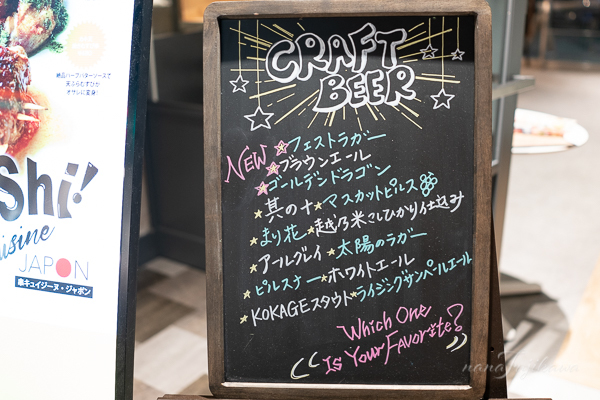 CRAFT
BEER
NEW ☆フェストラガー
☆ブラウンエール
☆ゴールデンドラゴン
★其の十★マスカットピルス
★まり花★越乃米こしひかり仕込み
★アールグレイ★太陽のラガー
★ピルスナー★ホワイトエール
★KOKAGEスタウト★ライジングサンペールエール
Which One
Is Your Favorite?
絶品ハーブバターソースで
天ぷらむすびが
オサレに変身!
Shi!
uisine
JAPON
串キュイジーヌ・ジャポン